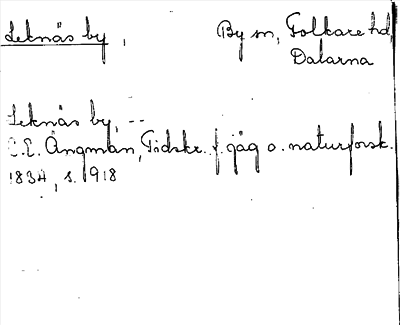 Leknäs by, By sn, Folkare hd
Dalarna
Leknäs by, --
C.E. Ångman, Tidskr. f. jäg o. naturforsk.
1834, s. 918